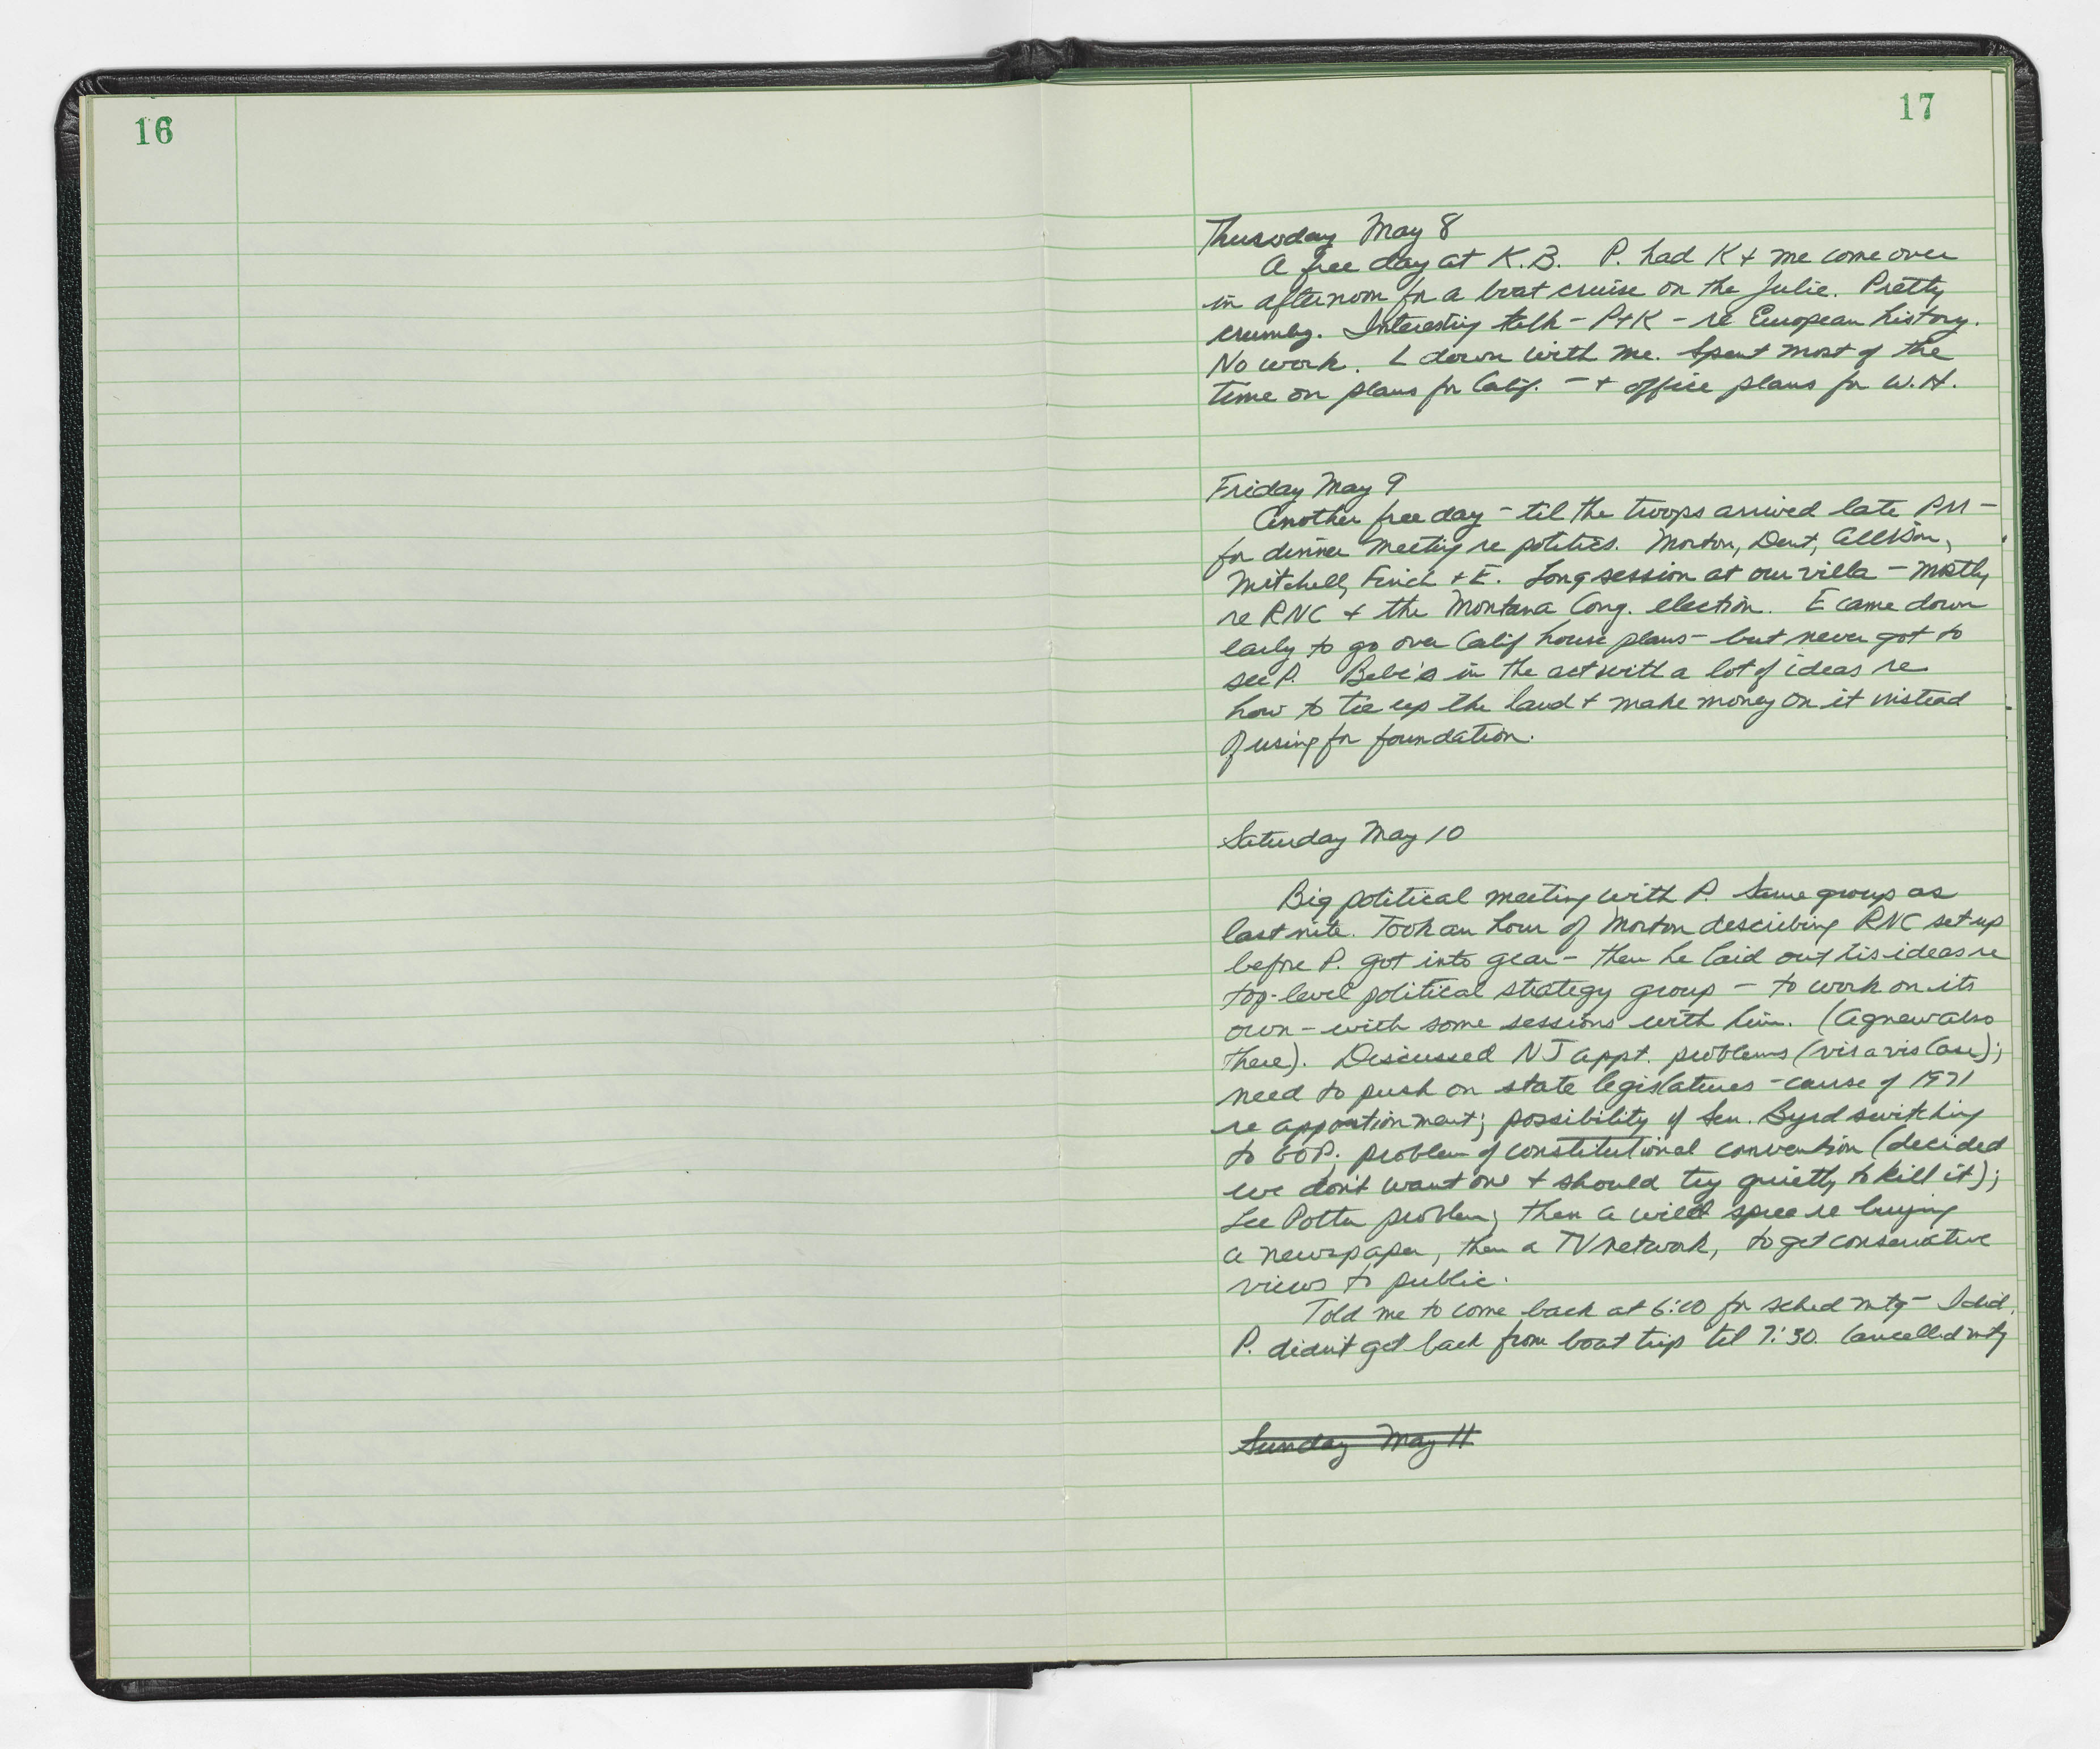 16
17
Thursday May 8
A free day at K.B. P. had K + me come over
in afternoon for a boat cruise on the Julie. Pretty
crumby. Interesting talk - P+K - re European history.
No work. L down with me. Spent most of the
time on plans for Calif. - + office plans for W.H.
Friday May 9
Another free day - til the troops arrived late PM -
for dinner meeting re politics. Morton, Dent, Allison,
Mitchell, Finch + E. Long session at our villa - mostly
re RNC + the Montana Cong. election. E came down
early to go over Calif house plans - but never got to
see P. Bebe's in the act with a lot of ideas re
how to tie up the land + make money on it instead
of using for foundation.
Saturday May 10
Big political meeting with P. Same group as
last nite. Took an hour of Morton describing RNC set up
before P. got into gear - then he laid out his ideas re
top-level political strategy group - to work on its
own - with some sessions with him. (Agnew also
there). Discussed NJ appt. problems (vis a vis Case);
need to push on state legislatures - cause of 1971
re apportionment; possibility of Sen. Byrd switching
to GOP; problem of constitutional convention (decided
we don't want one + should try quietly to kill it);
Lee Potter problem; then a wild spree re buying
a newspaper, then a TV network, to get conservative
views to public.
Told me to come back at 6:00 for sched mtg - I did.
P. didn't get back from boat trip til 7:30. Cancelled mtg
Sunday May 11